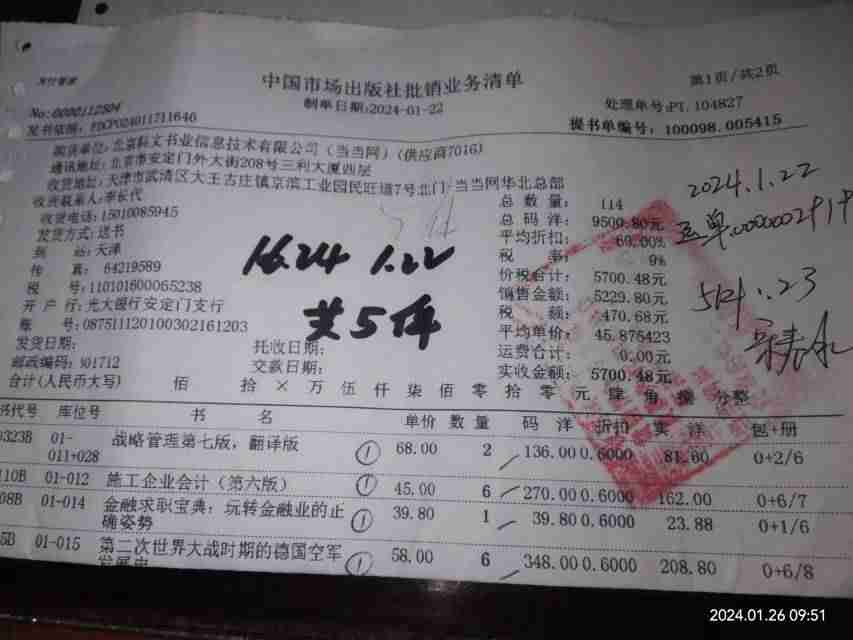 中国市场出版社批销业务清单
第1页/共2页
发行管理
制单日期:2024-01-22
处理单号:PT.104827
No:0000112504
提书单编号: 100098.005415
发书依据: FDCPO24011711646
购货单位:北京科文书业信息技术有限公司(当当网)(供应商7016)
通讯地址:北京市安定门外大街208号三利大厦四层
收货地址:天津市武清区大王古庄镇京滨工业园民旺道7号北门 当当网华北总部
收货联系人:李长代
收货电话:15010085945
发货方式:送书
到 站:天津
传 真: 64219589
税 号:110101600065238
开 户 行:光大银行安定门支行
账 号:087511120100302161203
发货日期:
邮政编码:301712
托收日期:
交款日期:
总 数 量: 114
总 码 洋: 9500.80元
平均折扣: 60.00%
税 率: 9%
价税合计: 5700.48元
销售金额: 5229.80元
税 额: 470.68元
平均单价: 45.875423
运费合计: 0.00元
实收金额: 5700.48元
2024.1.22
16.24 1.22
共5件
1.23
合计(人民币大写) 佰 拾 × 万 伍 仟 柒 佰 零 拾 零 元 肆 角 捌 分整
书代号 库位号 书 名 单价 数 量 码 洋 折扣 实 洋 包+册
0323B 01-011+028 战略管理第七版,翻译版 ① 68.00 2 136.00 0.6000 81.60 0+2/6
110B 01-012 施工企业会计(第六版) ① 45.00 6 270.00 0.6000 162.00 0+6/7
08B 01-014 金融求职宝典:玩转金融业的正确姿势 ① 39.80 1 39.80 0.6000 23.88 0+1/6
5B 01-015 第二次世界大战时期的德国空军发展史 ① 58.00 6 348.00 0.6000 208.80 0+6/8
2024.01.26 09:51